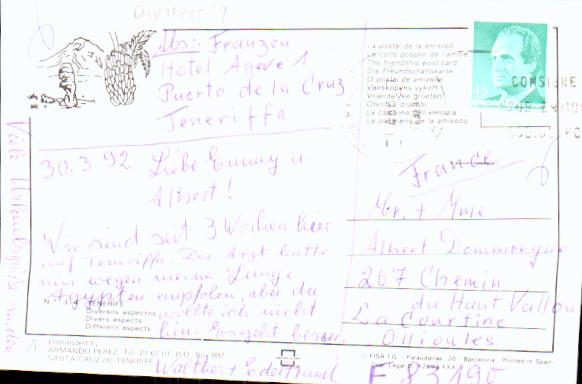 Abs: Franzen
Hotel Agave 1
Puerto de la Cruz
Teneriffa
La postal de la amistad
La carte postale de l'amitié
The friendship post card
Die Freundschaftskarte
O postal de amizade
Vanskopens vykort
Vriendelijke groeten
La cartolina dell'amicizia
30.3.92 Liebe Emmy u.
Albert!
Wir sind seit 3 Wochen hier
auf Teneriffa. Der Arzt hatte
mir wegen meine Lunge
Ägypten empfolen, aber da
wollte ich nicht
hin. Es geht besser.
Walther + Edeltraud
Viele Urlaubsgrüße
France
Mr. + Mme
Albert Dommergue
267 Chemin
du Haut Vallon
La Courtine
Ollioules
F 83190
TENERIFE
Diversos aspectos
Divers aspects
Different aspects
Distributed by
ARMANDO PEREZ. Tel. 21 62 01. P.O. Box 307
SANTA CRUZ DE TENERIFE
© FISA I.G. - Palaudarias, 26 - Barcelona Printed in Spain